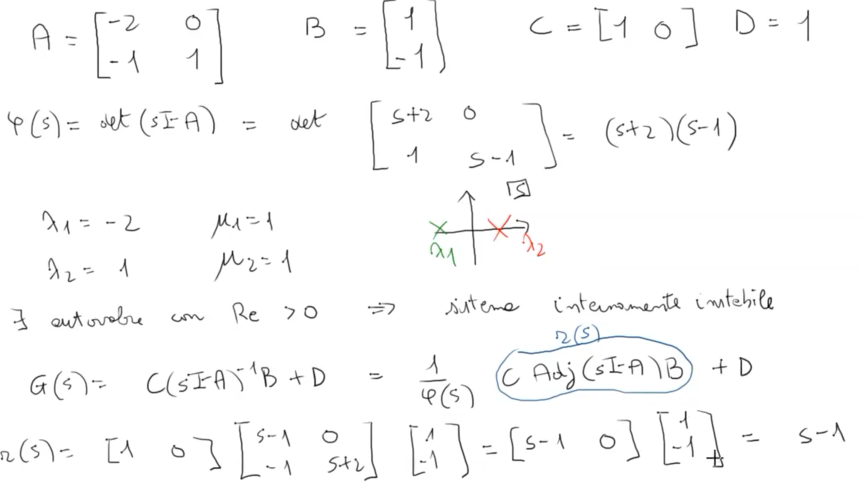 A = [-2 0; -1 1] B = [1; -1] C = [1 0] D = 1
φ(s) = det(sI-A) = det [s+2 0; 1 s-1] = (s+2)(s-1)
λ1 = -2 μ1 = 1
λ2 = 1 μ2 = 1
s
λ1 λ2
∃ autovalore con Re > 0 ⇒ sistema internamente instabile
r(s)
G(s) = C(sI-A)⁻¹B + D = 1/φ(s) C Adj(sI-A)B + D
r(s) = [1 0] [s-1 0; -1 s+2] [1; -1] = [s-1 0] [1; -1] = s-1